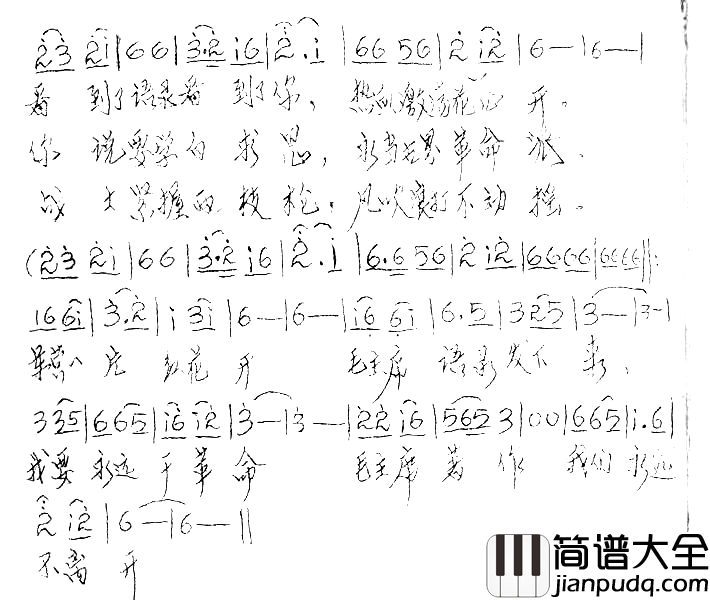 2 3 2 i | 6 6 | 3·2 i 6 | 2·i | 6 6 5 6 | 2 i 2 | 6 — | 6 — |
看 到了语录看 到了你，热血激荡花 开。
你 说要学 求 思，永当世界革命派。
战 士紧握 枪，风吹 打不动摇。
(2 3 2 i | 6 6 | 3·2 i 6 | 2·i | 6·6 5 6 | 2 i 2 | 6666 | 6666 ‖:
i 6 6 i | 3·2 | i 3 i | 6 — | 6 — | i 6 6 i | 6·5 | 3 2 5 | 3 — | 3 — |
红花 开 毛主席 语录发下来，
3 3 5 | 6 6 5 | i 6 i 2 | 3 — | 3 — | 2 2 i 6 | 5 6 5 3 | 0 0 | 6 6 5 | i·6 |
我要 永远 干革命 毛主席 著作 我们永远
2 i 2 | 6 — | 6 — ‖
不离 开
简谱大全
jianpudq.com